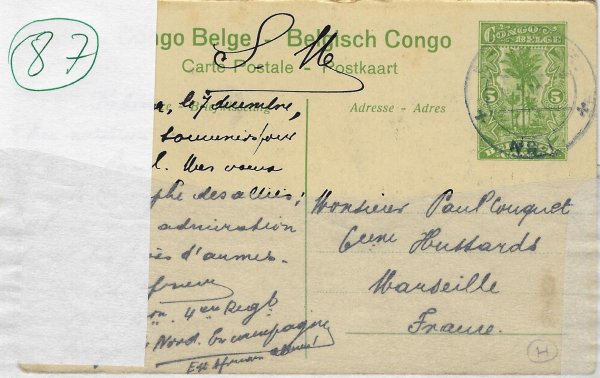 87
ngo Belge - Belgisch Congo
S. M
Carte Postale - Postkaart
CONGO
BELGE
5 5
No 2
Adresse - Adres
, le 7 decembre,
souvenir pour
l. Mes voeux
phe des alliés;
admiration
d'armes.
on. 4eme Regt
Nord. En campagne
Est Africain
Monsieur Paul Couquet
6eme Hussards
Marseille
France.
H